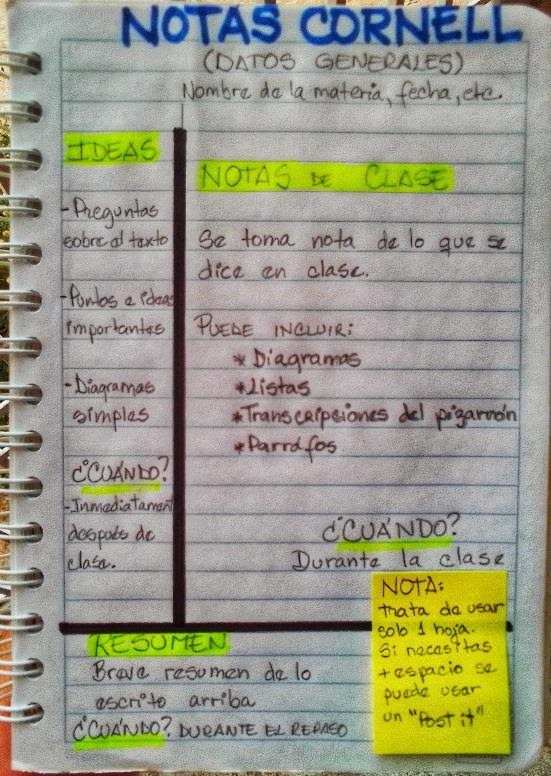 NOTAS CORNELL
(DATOS GENERALES)
Nombre de la materia, fecha, etc.
IDEAS
- Preguntas
sobre el texto
- Puntos e ideas
importantes
- Diagramas
simples
¿CUÁNDO?
- Inmediatament
después de
clase.
NOTAS DE CLASE
Se toma nota de lo que se
dice en clase.
PUEDE INCLUIR:
* Diagramas
* Listas
* Transcripciones del pizarrón
* Parráfos
¿CUÁNDO?
Durante la clase
RESUMEN
Breve resumen de lo
escrito arriba
¿CUÁNDO? DURANTE EL REPASO
NOTA:
trata de usar
solo 1 hoja.
Si necesitas
+ espacio se
puede usar
un "Post it"